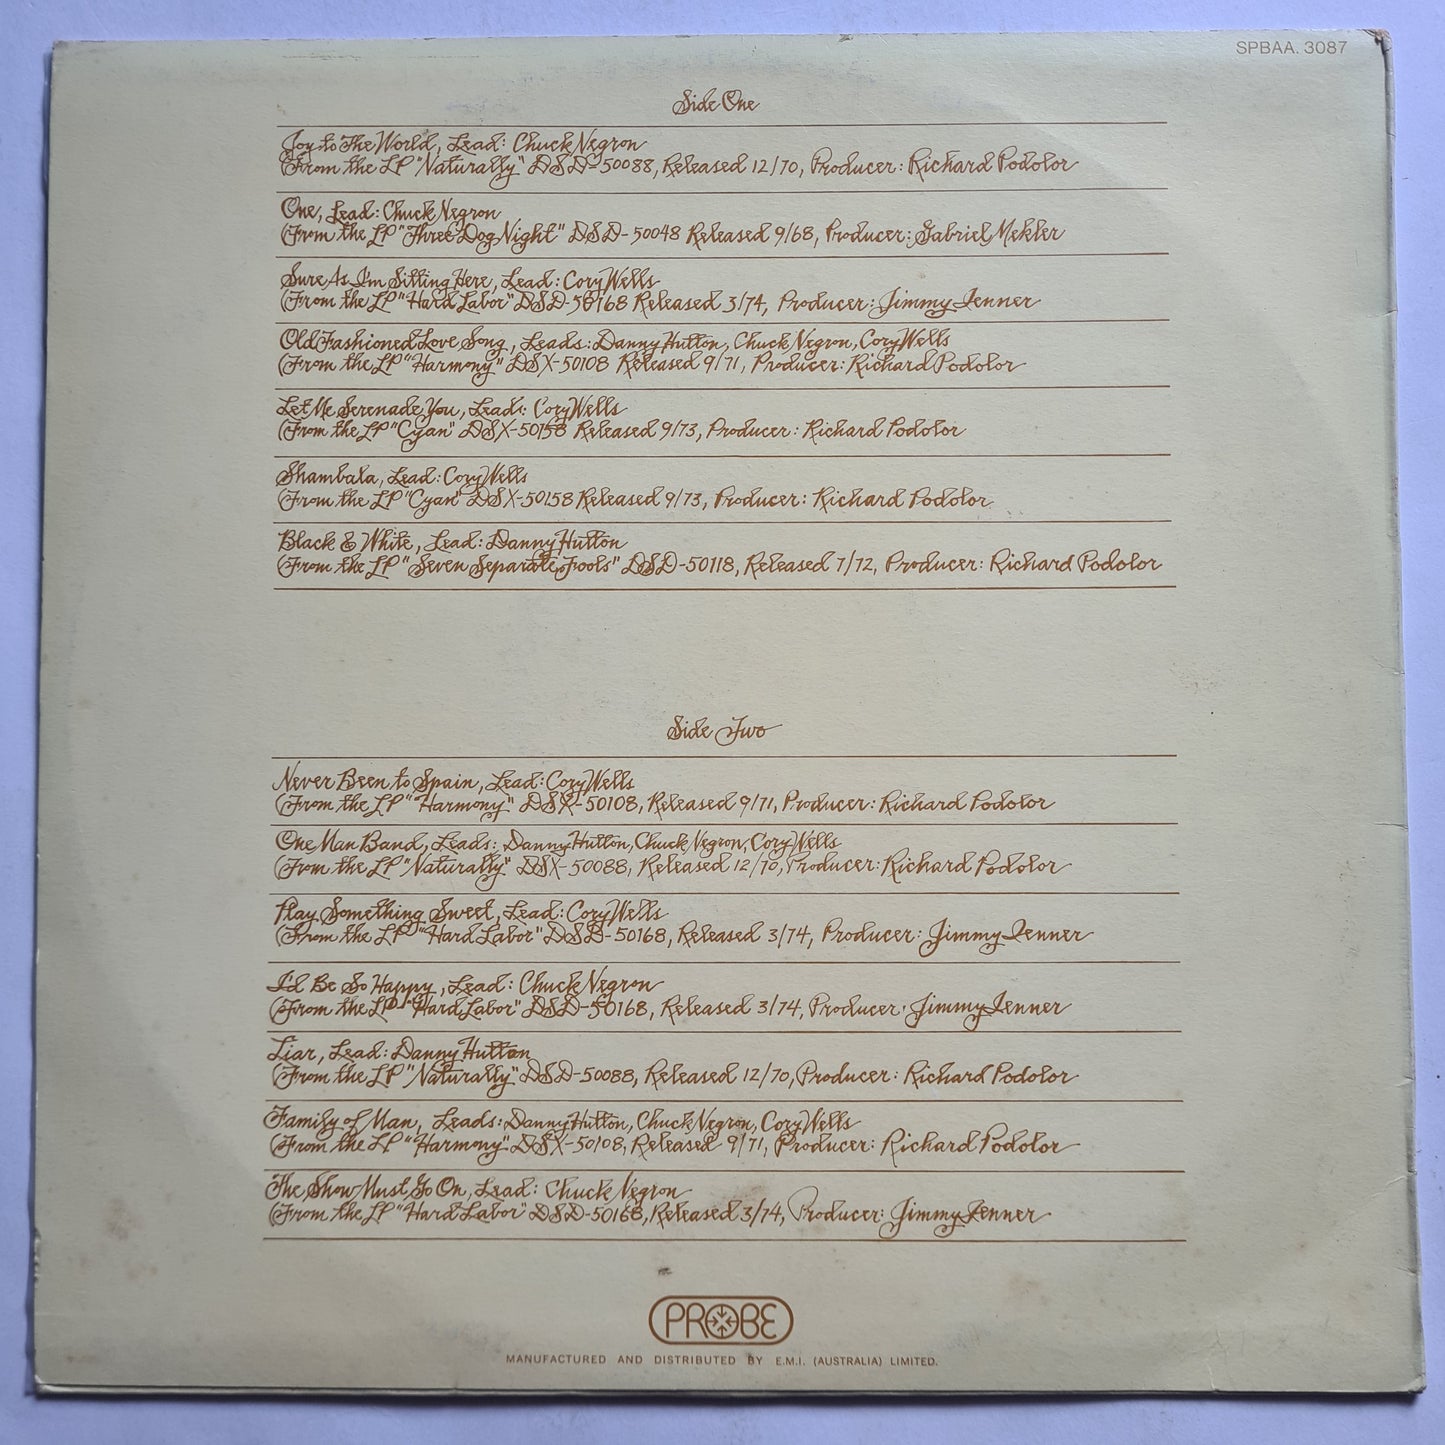 SPBAA. 3087
Side One
Joy to The World, Lead: Chuck Negron
(From the LP "Naturally" DSD-50088, Released 12/70, Producer: Richard Podolor
One, Lead: Chuck Negron
(From the LP "Three Dog Night" DSD-50048 Released 9/68, Producer: Gabriel Mekler
Sure As I'm Sitting Here, Lead: Cory Wells
(From the LP "Hard Labor" DSD-50168 Released 3/74, Producer: Jimmy Ienner
Old Fashioned Love Song, Leads: Danny Hutton, Chuck Negron, Cory Wells
(From the LP "Harmony" DSX-50108 Released 9/71, Producer: Richard Podolor
Let Me Serenade You, Lead: Cory Wells
(From the LP "Cyan" DSX-50158 Released 9/73, Producer: Richard Podolor
Shambala, Lead: Cory Wells
(From the LP "Cyan" DSX-50158 Released 9/73, Producer: Richard Podolor
Black & White, Lead: Danny Hutton
(From the LP "Seven Separate Fools" DSD-50118, Released 7/72, Producer: Richard Podolor
Side Two
Never Been to Spain, Lead: Cory Wells
(From the LP "Harmony" DSX-50108, Released 9/71, Producer: Richard Podolor
One Man Band, Leads: Danny Hutton, Chuck Negron, Cory Wells
(From the LP "Naturally" DSX-50088, Released 12/70, Producer: Richard Podolor
Play Something Sweet, Lead: Cory Wells
(From the LP "Hard Labor" DSD-50168, Released 3/74, Producer: Jimmy Ienner
I'd Be So Happy, Lead: Chuck Negron
(From the LP "Hard Labor" DSD-50168, Released 3/74, Producer: Jimmy Ienner
Liar, Lead: Danny Hutton
(From the LP "Naturally" DSD-50088, Released 12/70, Producer: Richard Podolor
Family of Man, Leads: Danny Hutton, Chuck Negron, Cory Wells
(From the LP "Harmony" DSX-50108, Released 9/71, Producer: Richard Podolor
The Show Must Go On, Lead: Chuck Negron
(From the LP "Hard Labor" DSD-50168, Released 3/74, Producer: Jimmy Ienner
PROBE
MANUFACTURED AND DISTRIBUTED BY E.M.I. (AUSTRALIA) LIMITED.